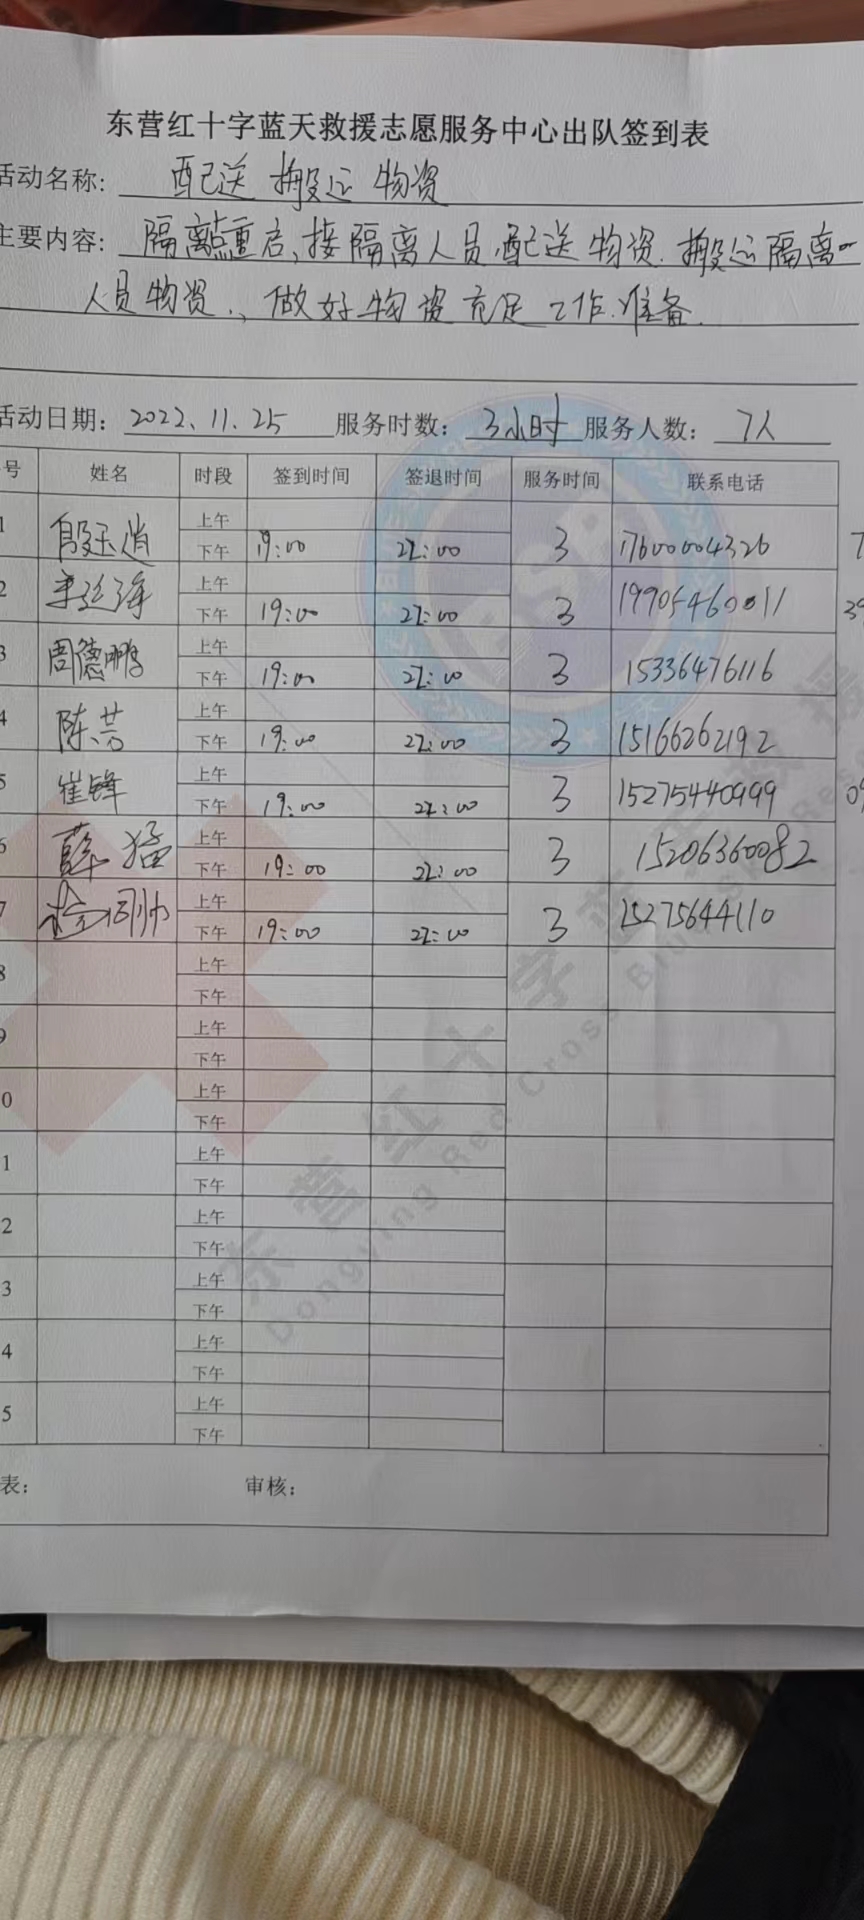 东营红十字蓝天救援志愿服务中心出队签到表
活动名称: 配送 搬运 物资
主要内容: 隔离点重启,接隔离人员.配送物资.搬运隔离
人员物资., 做好物资充足工作.准备.
活动日期: 2022.11.25 服务时数: 3小时 服务人数: 7人
号 姓名 时段 签到时间 签退时间 服务时间 联系电话
1 殷玉逍 上午
下午 19:00 22:00 3 17600004326
2 上午
下午 19:00 22:00 3 19905460011
3 周德鹏 上午
下午 19:00 22:00 3 15336476116
4 陈芳 上午
下午 19:00 22:00 3 15166262192
5 崔锋 上午
下午 19:00 22:00 3 15275440999
6 薛猛 上午
下午 19:00 22:00 3 15206360082
7 上午
下午 19:00 22:00 3 15275644110
8 上午
下午
9 上午
下午
0 上午
下午
1 上午
下午
2 上午
下午
3 上午
下午
4 上午
下午
5 上午
下午
表: 审核:
东营红十字蓝天救援
Dongying Red Cross Blue Sky Rescue